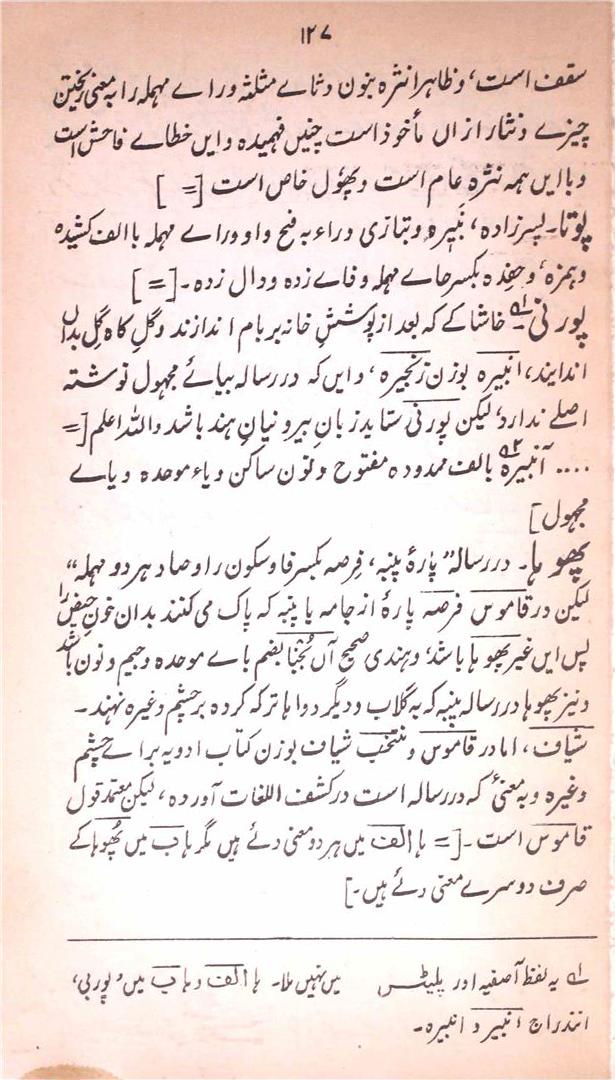 ۱۲۷
سقف است، و ظاہرا نثرہ بنون و ثاے مثلثہ و راے مہملہ را بہ معنی ریختن
چیزے و نثار ازاں مأخوذ است چنیں فہمیدہ و ایں خطاے فاحش است
و باایں ہمہ نثرہ عام است و پھول خاص است [= ]
پوتا۔ پسرزادہ، نبیرہ و بتازی وراء بہ فتح واو و راے مہملہ با الف کشیدہ
و ہمزہ، و حفدہ بکسر حاے مہملہ و فاے زدہ و دال زدہ۔ [= ]
پورنی۱ـ خاشاکے کہ بعد از پوشش خانہ بر بام اندازند و گلِ کاہ گِل بداں
اندایند، انبیرہ بوزن زنجیرہ، و ایں کہ در رسالہ بیائے مجہول نوشتہ
اصلے ندارد، لیکن پورنی شاید زبانِ بیرونیانِ ہند باشد واللہ اعلم [=
.... آنبیرہ۲ بالف ممدودہ مفتوح و نون ساکن و باء موحدہ و یاے
مجہول]
پھوہا۔ در رسالہ "پارۂ پنبہ، فِرصہ بکسر فا و سکون را و صاد ہر دو مہملہ"
لیکن در قاموس فرصہ پارۂ از جامہ یا پنبہ کہ پاک می کنند بداں خونِ حیض را
پس ایں غیر پھوہا باشد، و ہندی صحیح آں بضم باے موحدہ و جیم و نون باشد
و نیز پھوہا در رسالہ پنبہ کہ بہ گلاب و دیگر دواہا تر کردہ بر چشم وغیرہ نہند۔
شیاف، اما در قاموس و منتخب شیاف بوزن کتاب ادویہ براے چشم
وغیرہ و بہ معنیٔ کہ در رسالہ است در کشف اللغات آوردہ، لیکن معتمد قول
قاموس است۔ [= ہا الف میں ہر دو معنی دئے ہیں مگر ہا ب میں پھوہا کے
صرف دوسرے معنی دئے ہیں۔]
۱ یہ لفظ آصفیہ اور پلیٹس میں نہیں ملا۔ ہا الف و ہا ب میں، پوربی،
اندراج انبیر و انبیرہ۔